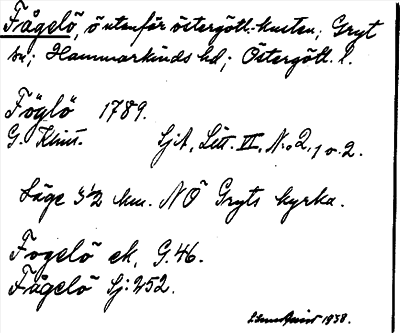 Fågelö, ö utenför östergötl. kusten; Gryt
sn; Hammarkinds hd; Östergötl. l.
Föglö 1789.
G. Klint. Sj.A, Litt. VI, No 2, 1 o. 2.
Läge 3 1/2 km. NÖ Gryts kyrka.
Fogelö ek. G. 46.
Fågelö Sj: 252.
1938.